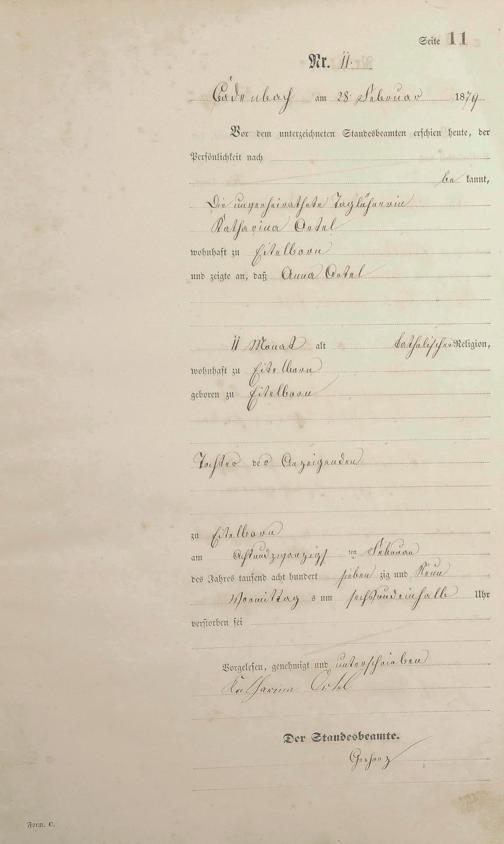 Seite 11
Nr. 11.
Cadenbach am 28 Februar 1879
Vor dem unterzeichneten Standesbeamten erschien heute, der
Persönlichkeit nach
be kannt,
Die unverheirathete Taglöhnerin
Katharina Oetel
wohnhaft zu Eitelborn
und zeigte an, daß Anna Oetel
11 Monat alt katholischer Religion,
wohnhaft zu Eitelborn
geboren zu Eitelborn
Tochter der Anzeigenden
zu Eitelborn
am Achtundzwanzigsten Februar
des Jahres tausend acht hundert sieben zig und Neun
Vormittag s um sechsundeinhalb Uhr
verstorben sei
Vorgelesen, genehmigt und unterschrieben
Katharina Oetel
Der Standesbeamte.
Form. C.